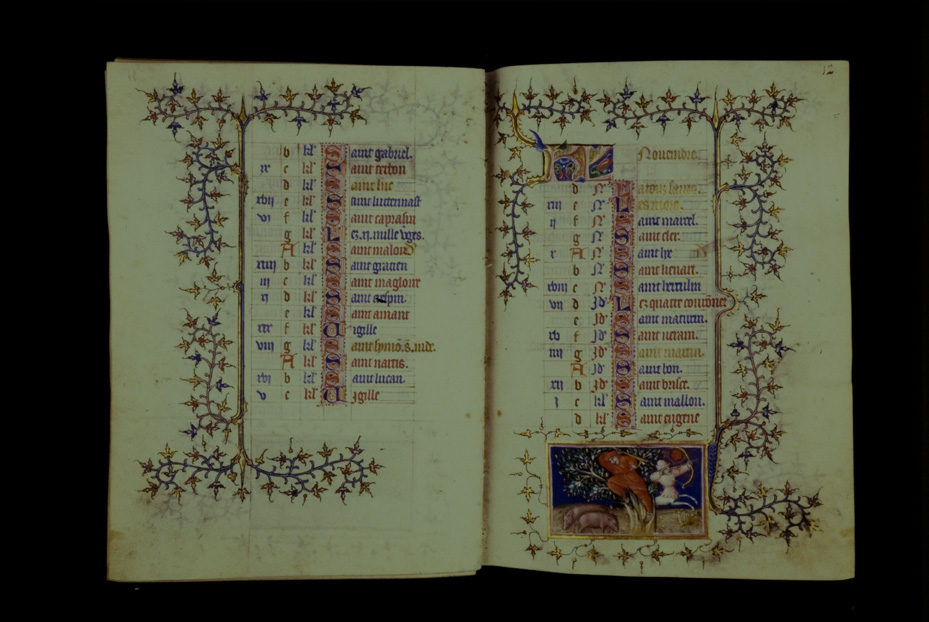 b kl' Saint gabriel.
ix c kl' Saint
d kl' Saint luc
xvii e kl' Saint
vi f kl' Saint caprasin
g kl' Les .xi. mille vges.
A kl' Saint malon
xiiii b kl' Saint gratien
iii c kl' Saint magloire
xi d kl' Saint
e kl' Saint amant
xix f kl' Uigille
viii g kl' Saint symō. s. iude.
A kl' Saint nartis.
xvi b kl' Saint lucan.
v c kl' Uigille
12
Nouembre.
d N'
xiii e N' Les mors.
ii f N' Saint marcel.
g N' Saint cler.
x A N' Saint lie
b N' Saint lienart.
xviii c N' Saint herculin
vii d Id' Les quatre couronez
e Id' Saint maturin.
xv f Id' Saint ueram.
iiii g Id' Saint martin.
A Id' Saint lon.
xii b Id' Saint brice.
i c kl' Saint mallon.
d kl' Saint eugene